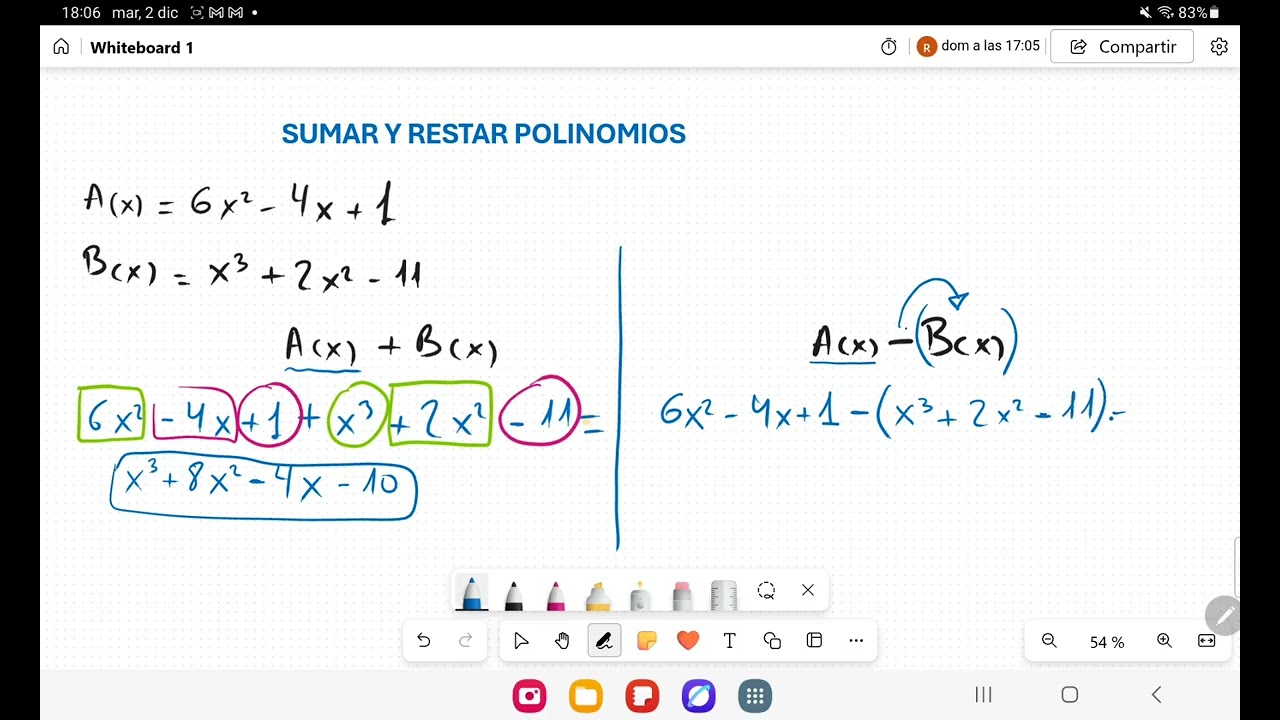 18:06 mar, 2 dic 83%
Whiteboard 1 R dom a las 17:05 Compartir
SUMAR Y RESTAR POLINOMIOS
A(x) = 6x² - 4x + 1
B(x) = x³ + 2x² - 11
A(x) + B(x)
6x² - 4x + 1 + x³ + 2x² - 11 =
x³ + 8x² - 4x - 10
A(x) - (B(x))
6x² - 4x + 1 - (x³ + 2x² - 11) =
T 54 %